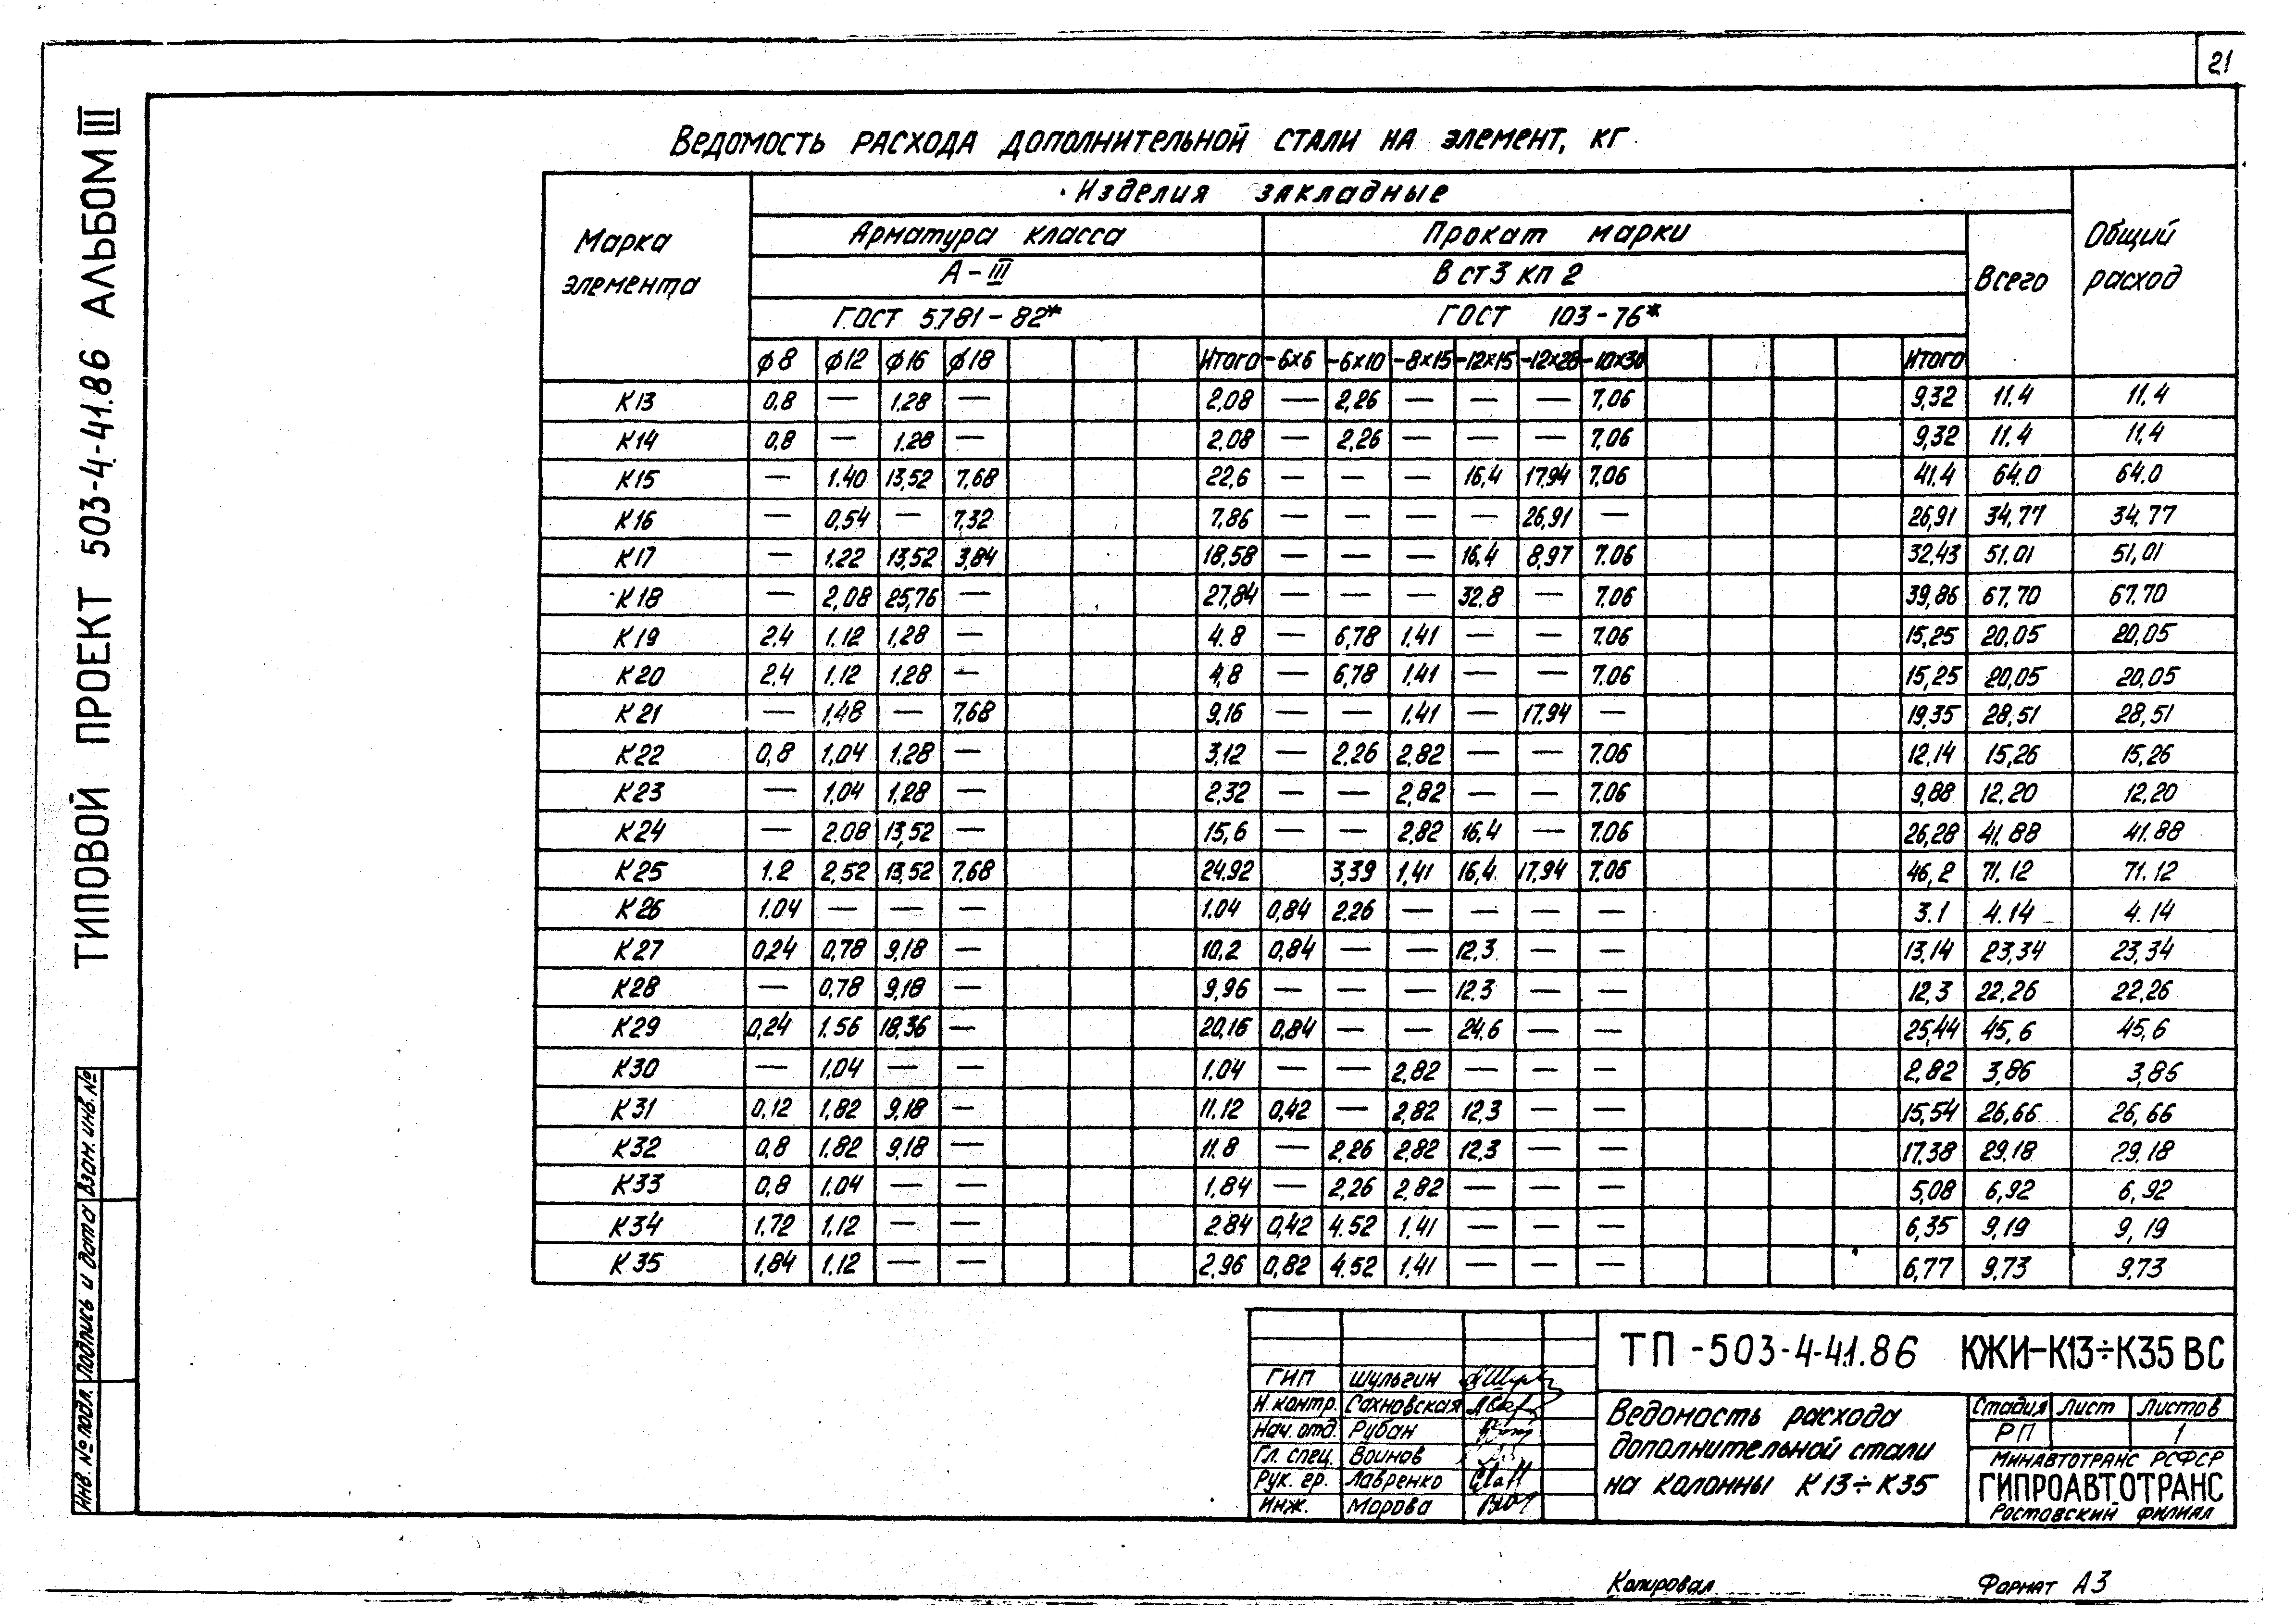 21
ТИПОВОЙ ПРОЕКТ 503-4-41.86 АЛЬБОМ III
Ведомость расхода дополнительной стали на элемент, кг
Марка элемента
Изделия закладные
Общий расход
Арматура класса
Прокат марки
Всего
А-III
Вст3кп2
ГОСТ 5781-82*
ГОСТ 103-76*
ϕ8 ϕ12 ϕ16 ϕ18 Итого -6×6 -6×10 -8×15 -12×15 -12×28 -10×30 Итого
К13 0,8 — 1.28 — 2,08 — 2,26 — — — 7,06 9,32 11.4 11.4
К14 0,8 — 1.28 — 2,08 — 2,26 — — — 7,06 9,32 11.4 11,4
К15 — 1.40 13,52 7,68 22,6 — — — 16,4 17,94 7.06 41.4 64.0 64.0
К16 — 0,54 — 7,32 7,86 — — — — 26,91 — 26,91 34,77 34,77
К17 — 1.22 13,52 3,84 18,58 — — — 16,4 8,97 7.06 32,43 51.01 51,01
К18 — 2,08 25,76 — 27,84 — — — 32.8 — 7.06 39,86 67.70 67.70
К19 2,4 1.12 1,28 — 4.8 — 6,78 1.41 — — 7.06 15,25 20,05 20,05
К20 2,4 1.12 1.28 — 4,8 — 6,78 1.41 — — 7.06 15,25 20,05 20,05
К21 — 1,48 — 7,68 9,16 — — 1.41 — 17,94 — 19,35 28,51 28,51
К22 0,8 1,04 1,28 — 3,12 — 2.26 2,82 — — 7.06 12,14 15,26 15,26
К23 — 1,04 1,28 — 2,32 — — 2,82 — — 7.06 9,88 12.20 12,20
К24 — 2.08 13,52 — 15,6 — — 2,82 16,4 — 7.06 26,28 41.88 41.88
К25 1.2 2,52 13,52 7.68 24.92 3,39 1,41 16,4 17,94 7.06 46,2 71.12 71.12
К26 1.04 — — — 1.04 0,84 2.26 — — — — 3.1 4.14 4.14
К27 0,24 0,78 9,18 — 10,2 0,84 — — 12.3 — — 13,14 23,34 23,34
К28 — 0,78 9,18 — 9,96 — — — 12.3 — — 12,3 22,26 22,26
К29 0,24 1.56 18,36 — 20,16 0,84 — — 24.6 — — 25,44 45,6 45,6
К30 — 1,04 — — 1.04 — — 2,82 — — — 2,82 3,86 3,86
К31 0,12 1,82 9,18 — 11.12 0,42 — 2,82 12,3 — — 15,54 26,66 26,66
К32 0,8 1.82 9,18 — 11.8 — 2.26 2,82 12.3 — — 17,38 29,18 29,18
К33 0,8 1.04 — — 1,84 — 2,26 2,82 — — — 5,08 6,92 6,92
К34 1,72 1,12 — — 2.84 0,42 4.52 1.41 — — — 6,35 9,19 9,19
К35 1,84 1.12 — — 2,96 0,82 4.52 1.41 — — — 6,77 9,73 9,73
Инв. № подл. Подпись и дата Взам. инв. №
ТП-503-4-41.86 КЖИ-К13÷К35 ВС
ГИП Шульгин
Н.контр. Сахновская
Нач. отд. Рубан
Гл. спец. Воинов
Рук. гр. Лавренко
Инж. Морова
Ведомость расхода
дополнительной стали
на колонны К13÷К35
Стадия Лист Листов
РП 1
МИНАВТОТРАНС РСФСР
ГИПРОАВТОТРАНС
Ростовский филиал
Копировал Формат А3